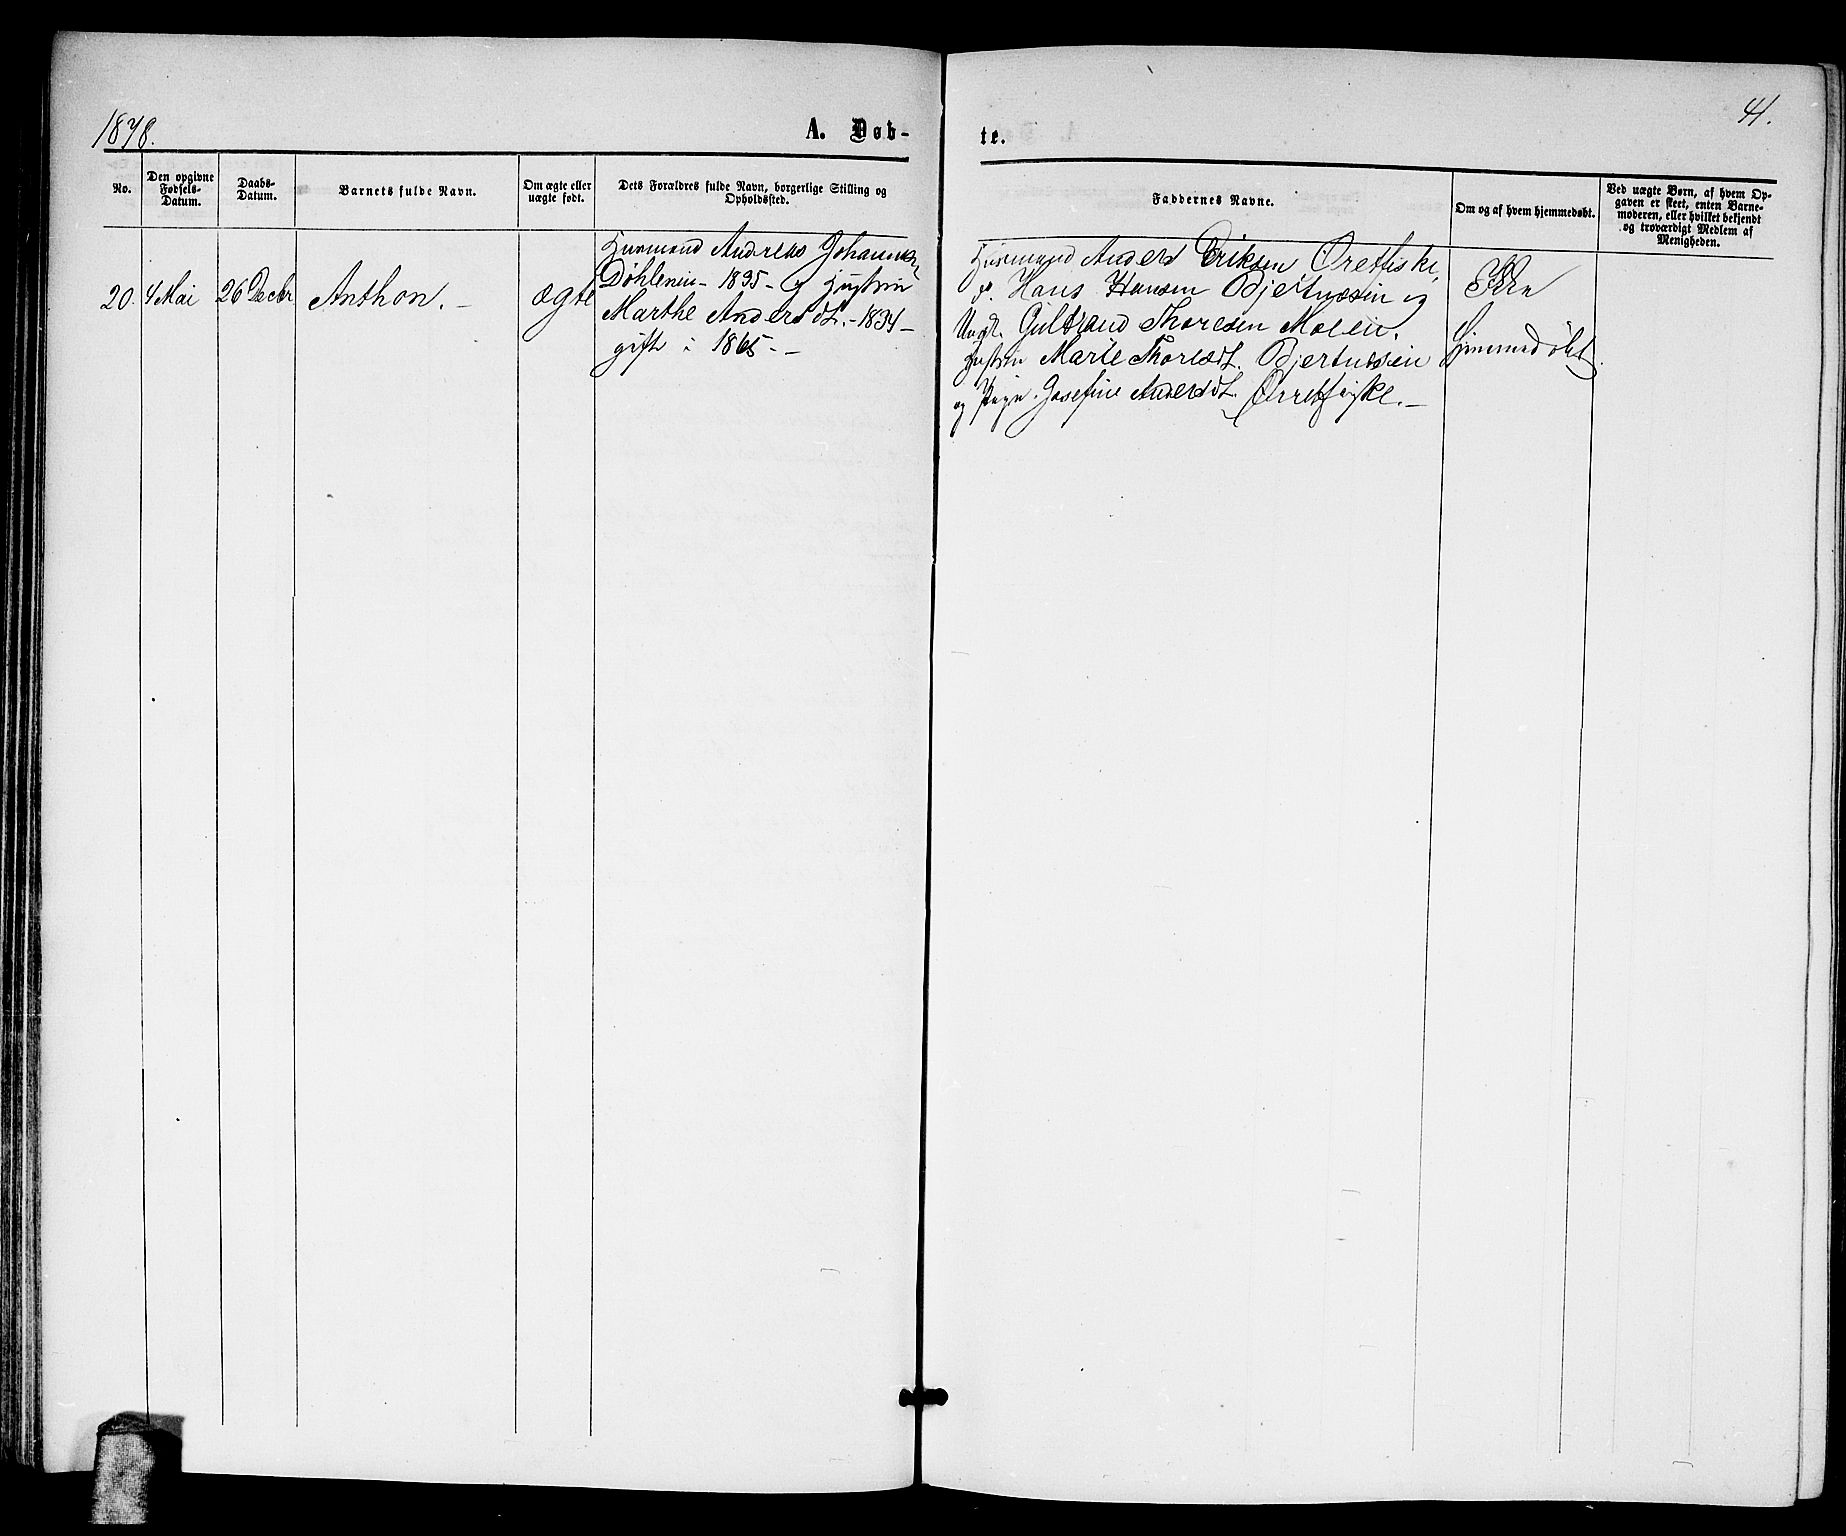 1878.
A. Døb-
te.
41.
No.
Den opgivne
Fødsels-
Datum.
Daabs-
Datum.
Barnets fulde Navn.
Om ægte eller
uægte født.
Dets Forældres fulde Navn, borgerlige Stilling og
Opholdssted.
Faddernes Navne.
Om og af hvem hjemmedøbt.
Ved uægte Børn, af hvem Op-
gaven er skeet, enten Barne-
moderen, eller hvilket bekjendt
og troværdigt Medlem af
Menigheden.
20.
4 Mai
26 Decbr
Anthon. -
ægte
Huusmand Andreas Johannes
Døhleneie - 1835 - og Hustru
Marthe Andersdt. - 1834 -
gift i 1865 - -
Huusmand Anders Eriksen Øretfiske,
do. Hans Hansen Bjertnæsein og
Ungk. Gulbrand Thoresen Moeein.
Hustru Marie Thoresdt. Bjertnæsein
og Pige. Josefine Andersdt. Ørretfiske. -
Ikke
Hjemmedøbt